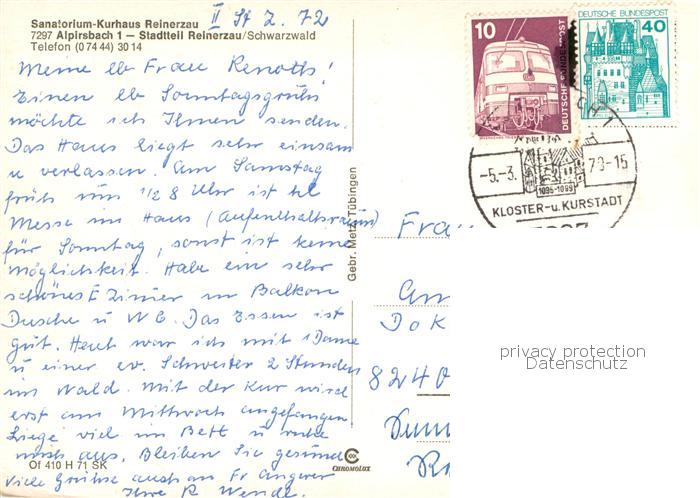 Sanatorium-Kurhaus Reinerzau
7297 Alpirsbach 1 — Stadtteil Reinerzau/Schwarzwald
Telefon (0 74 44) 30 14
II St Z. 72
Meine lb Frau Renoth!
Einen lb Sonntagsgruß
möchte ich Ihnen senden.
Das Haus liegt sehr einsam
u verlassen. Am Samstag
früh um 1/2 8 Uhr ist hl
Messe im Haus (Aufenthaltsraum)
für Sonntag, sonst ist keine
Möglichkeit. Habe ein sehr
schönes E Zimmer m Balkon
Dusche u WC. Das Essen ist
gut. Heut war ich mit 1 Dame
u einer ev. Schwester 2 Stunden
im Wald. Mit der Kur wird
erst am Mittwoch angefangen
Liege viel im Bett u ruhe
mich aus. Bleiben Sie gesund
Viele Grüße auch an Fr Angerer
Ihre R Wende.
Of 410 H 71 SK
Gebr. Metz, Tübingen
CHROMOLUX
10
DEUTSCHE BUNDESPOST
DEUTSCHE BUNDESPOST
40
-5.-3.
1095-1099
79-15
KLOSTER-u. KURSTADT
7297
Frau
Am
Dok
8240
privacy protection
Datenschutz